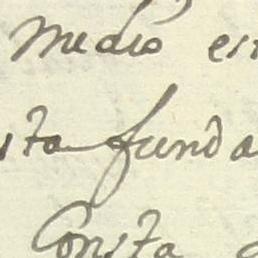 medio est
sta funda
Consta